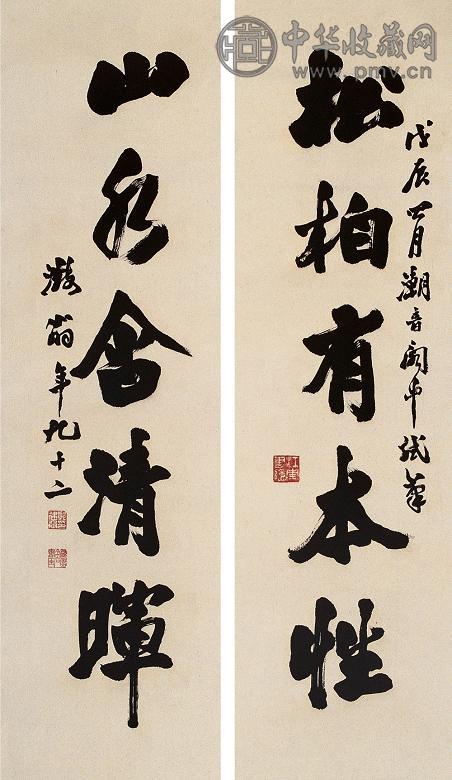 中华收藏网
www.pmv.cn
松柏有本性
戊辰四月潮音閣中試筆
山水含清暉
翁年九十二